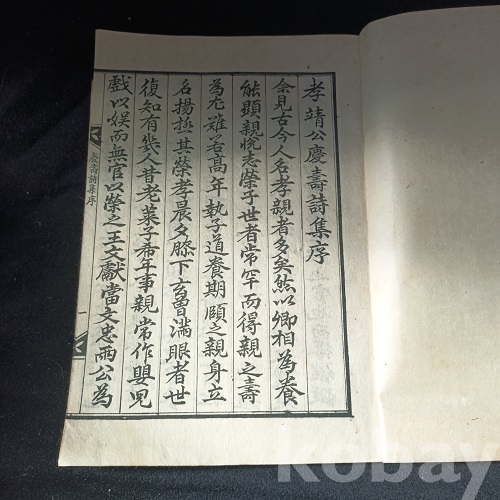 孝靖公慶壽詩集序
余見古今人名孝親者多矣然以卿相為養
能顯親悅志榮於世者常罕而得親之壽
為尤難若高年執子道養期頤之親身立
名揚極其榮孝晨夕膝下玄曾滿眼者世
復知有幾人昔老萊子希年事親常作嬰児
戲以娛而無官以榮之王文獻當文忠兩公為
慶壽詩集序
一
kobay